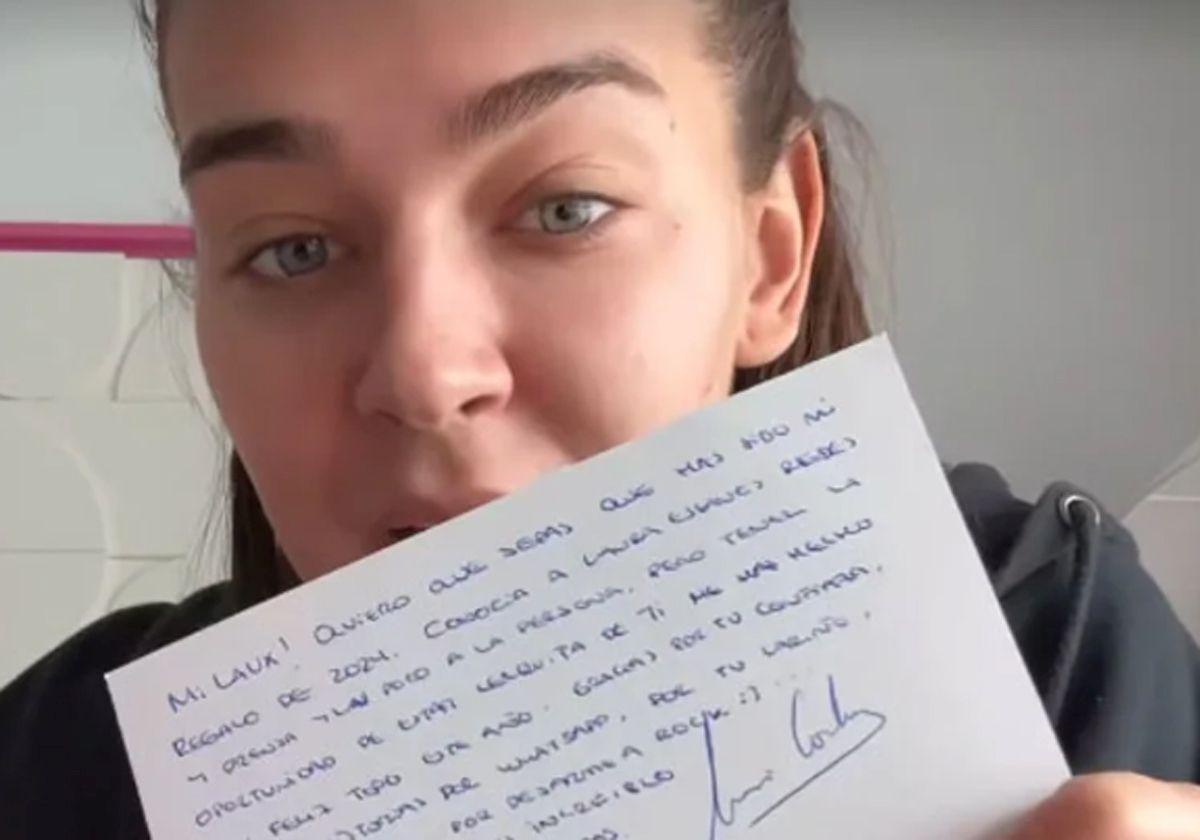 MI LAUX! QUIERO QUE SEPAS QUE HAS SIDO MI
REGALO DE 2024. CONOCÍA A LAURA REDES
Y PRENSA Y A LA PERSONA, PERO TENER LA
OPORTUNIDAD DE ESTAR CERQUITA DE TI ME HAS HECHO
FELIZ TODO ESTE AÑO. GRACIAS POR TU CONFIANZA,
POR WHATSAPP, POR TU CARIÑO,
POR DEJARME A :)
INCREIBLE